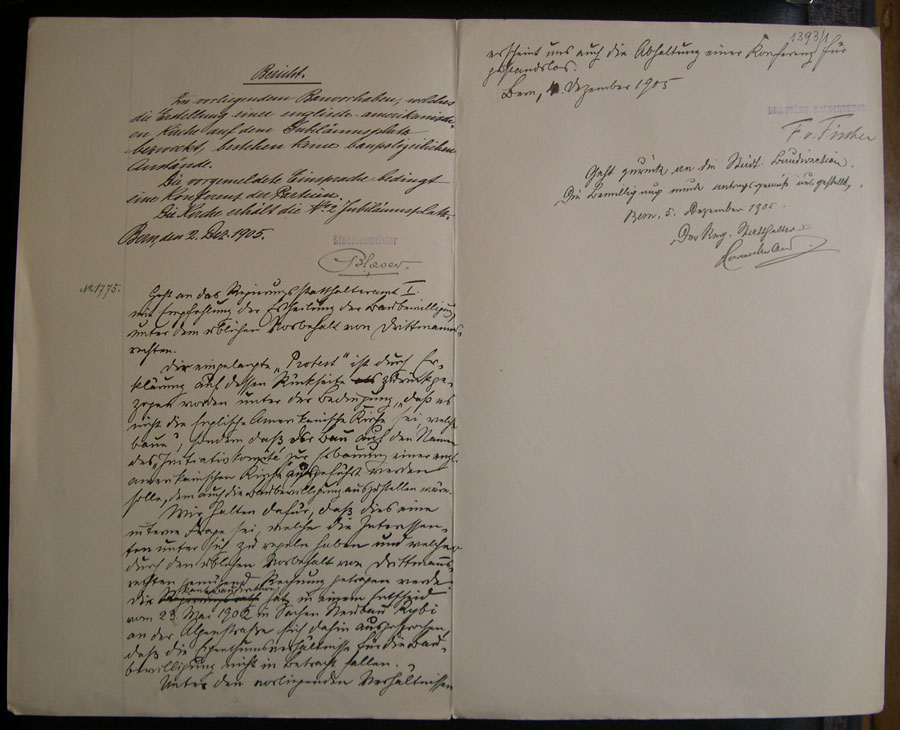 Bericht.
Im vorliegendem Bauvorhaben, welches
die Erstellung einer englisch-amerikanisch-
en Kirche auf dem Jubiläumsplatz
bezweckt, bestehen keine baupolizeilichen
Anstände.
Die vorgemeldete Einsprache bedingt
eine Konferenz der Parteien.
Die Kirche erhält die No 2 Jubiläumsplatz.
Bern, den 2. Dez. 1905.
Stadtbaumeister
No. 1775.
Geht an das Regierungsstatthalteramt I.
mit Empfehlung der Ertheilung der Baubewilligung
unter dem üblichen Vorbehalt von Drittmanns-
rechten.
Der eingelangte „Protest" ist durch Er-
klärung auf dessen Rückseite zurückge-
zogen worden unter der Bedingung, „daß es
nicht die Englische Amerikanische Kirche sei, welche
baue", sondern daß der Bau auf den Namen
des „Initiativkomité zur Erbauung einer engl.
amerikanischen Kirche" ausgeführt werden
solle, dem auch die Baubewilligung auszustellen wäre.
Wir halten dafür, daß dies eine
interne Frage sei, welche die Interessen-
ten unter sich zu regeln haben und welcher
durch den üblichen Vorbehalt von Drittmanns-
rechten genügend Rechnung getragen werde.
Die Baudirektion hat in einem Entscheid
vom 23. Mai 1902 in Sachen Neubau
an der Alpenstraße sich dahin ausgesprochen,
daß die Eigenthumsverhältnisse für die Bau-
bewilligung nicht in Betracht fallen.
Unter den vorliegenden Verhältnissen
1393/1
erscheint uns auch die Abhaltung einer Konferenz für
gegenstandslos.
Bern, 4. Dezember 1905
DER STÄDT. BAUDIREKTOR
F. v. Fischer
Geht zurück an die Städt. Baudirection.
Die Bewilligung wurde antragsgemäß ausgestellt.
Bern, 5. Dezember 1905.
Der Reg. Statthalter I: